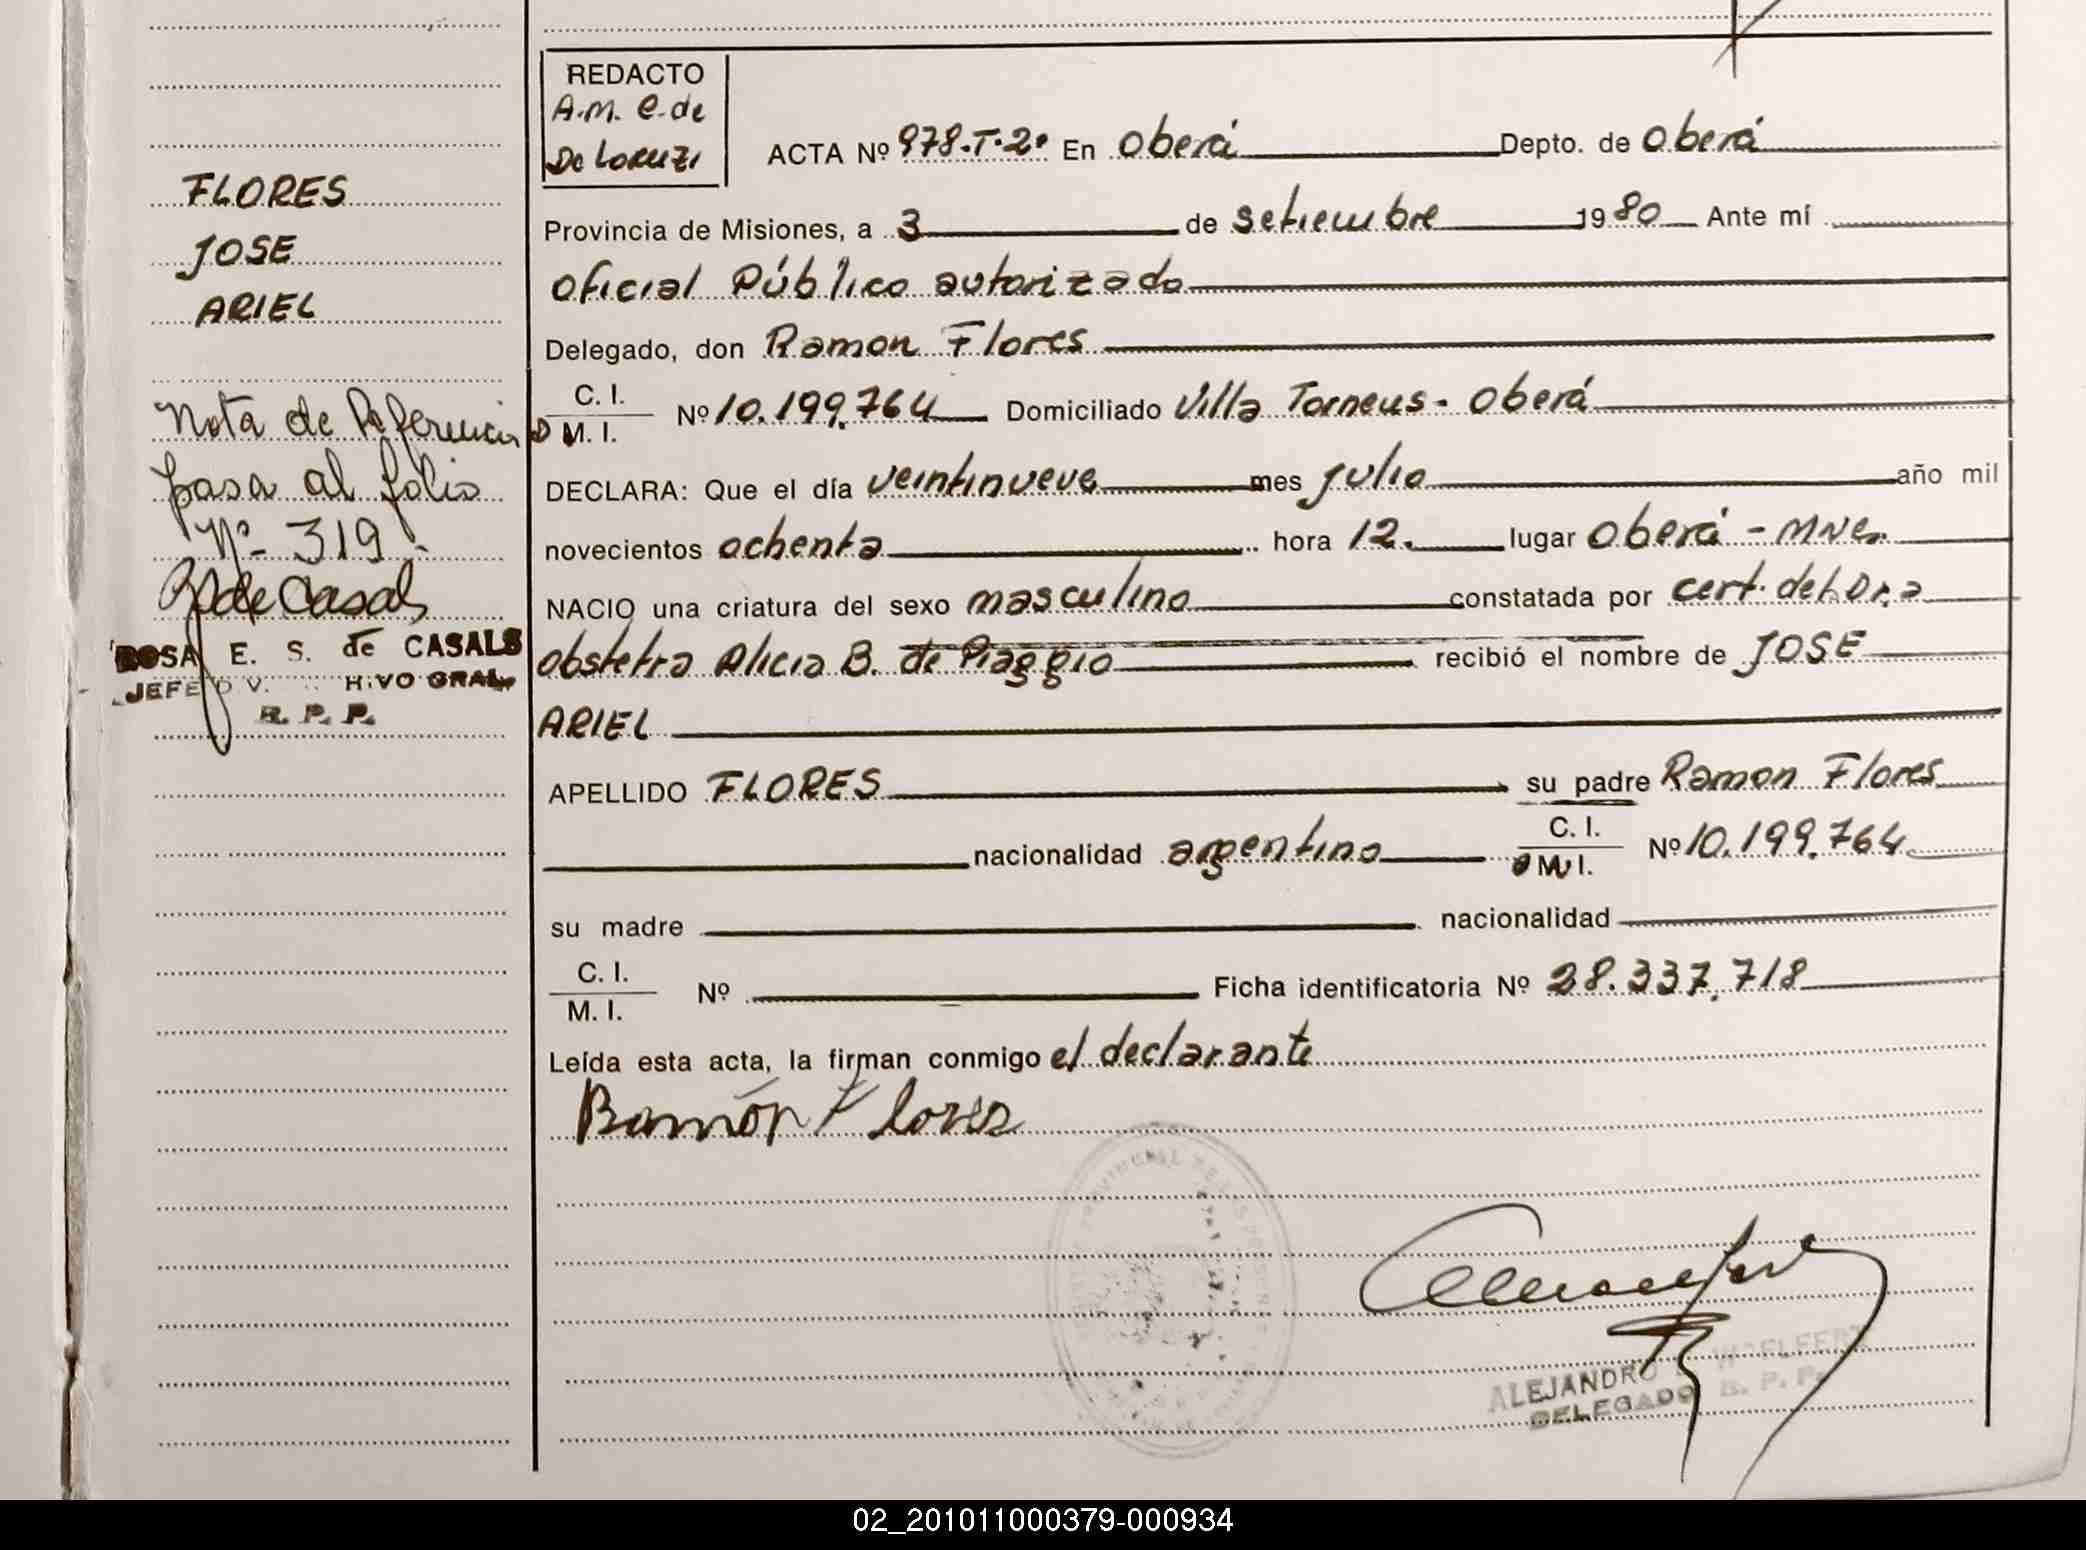 FLORES
JOSE
ARIEL
Nota de Referencia
pasa al folio
Nº 319.
R de Casals
ROSA E. S. de CASALS
JEFE DIV. HIVO GRAL.
R. P. P.
REDACTO
A.M. C. de
De Loruzi
ACTA Nº 978.T.2º En Oberá Depto. de Oberá
Provincia de Misiones, a 3 de setiembre 1980 Ante mí
Oficial Público autorizado
Delegado, don Ramon Flores
C. I.
D M. I. Nº 10.199.764 Domiciliado Villa Torneus - Oberá
DECLARA: Que el día veintinueve mes julio año mil
novecientos ochenta hora 12. lugar Oberá - Mnes.
NACIO una criatura del sexo masculino constatada por cert. del Dr.a
obstetra Alicia B. de Piaggio recibió el nombre de JOSE
ARIEL
APELLIDO FLORES su padre Ramon Flores
nacionalidad argentino C. I. M. I. Nº 10.199.764
su madre nacionalidad
C. I.
M. I. Nº Ficha identificatoria Nº 28.337.718
Leída esta acta, la firman conmigo el declarante
Ramón Flores
PROVINCIAL DE LAS PERSONAS
ALEJANDRO WOELFERT
DELEGADO R. P. P.
02_201011000379-000934